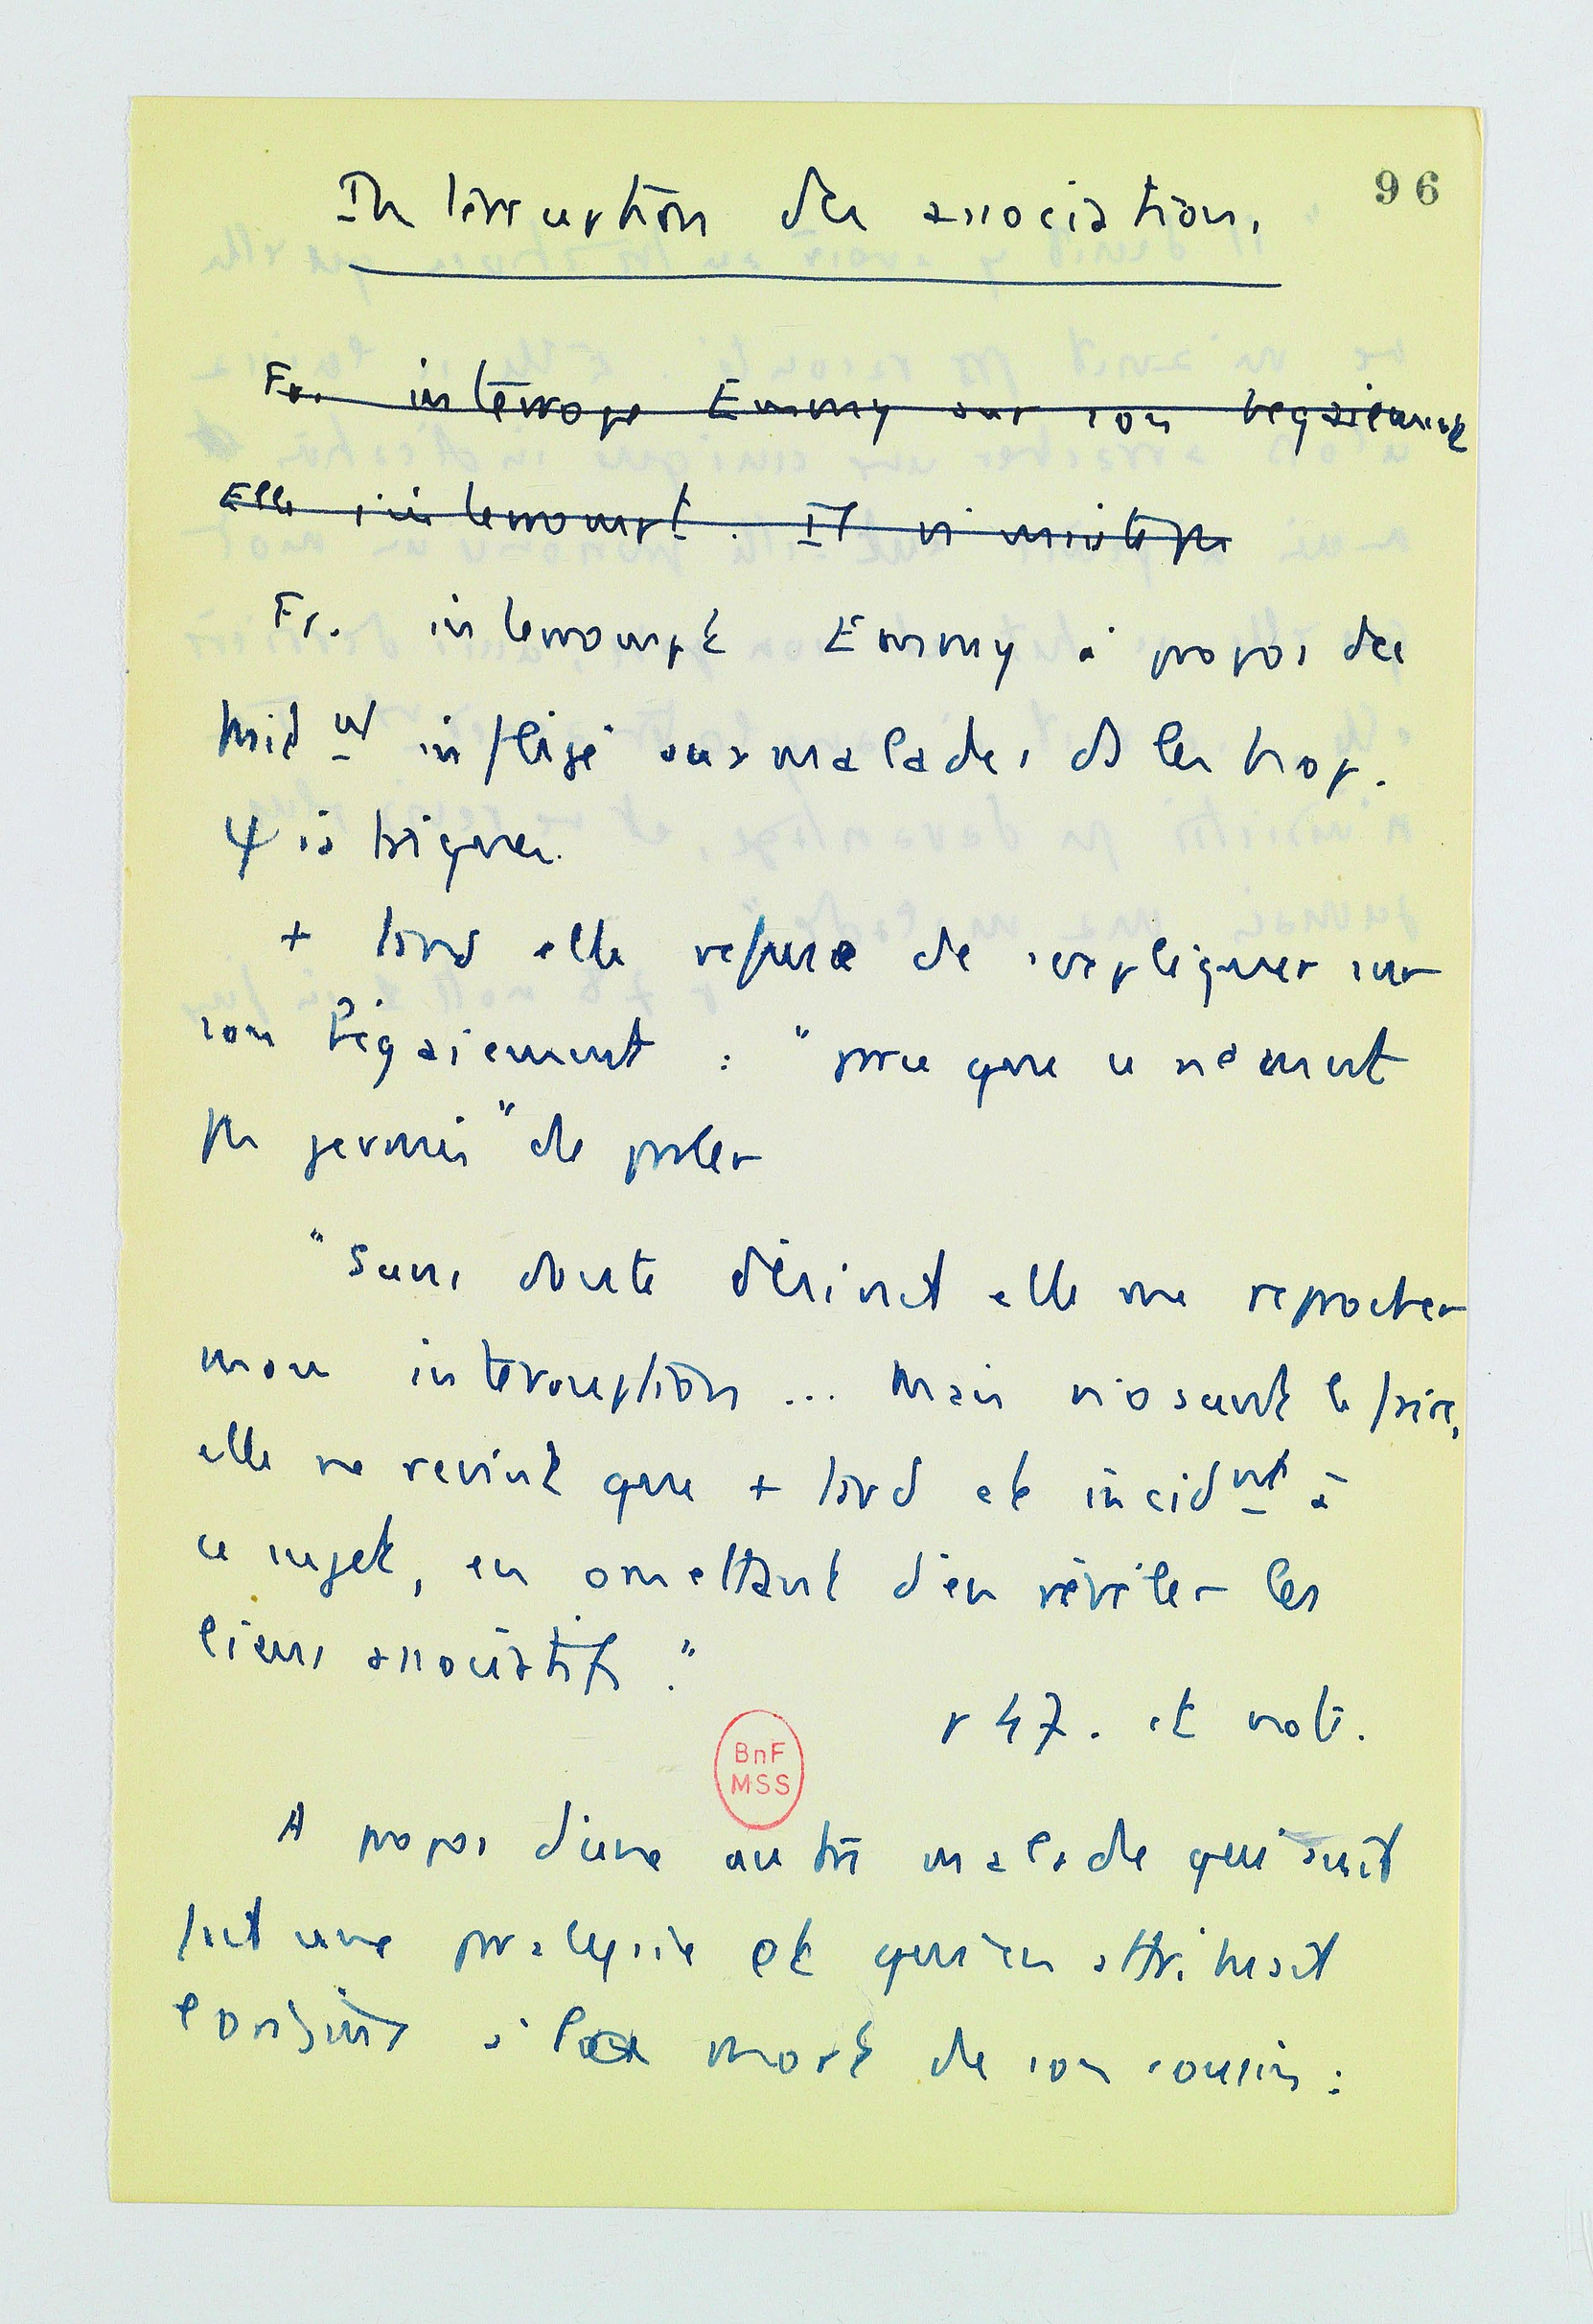 96
Interruption des associations.
Fr. interroge Emmy sur son begaiement
Elle s'interrompt. Il n'insiste pas
Fr. interrompt Emmy à propos des
trait nt infligé aux malades ds les hop.
ψiatriques.
+ tard elle refuse de s'expliquer sur
son bégaiement : "parce que ce n'ément
pas permis" de parler
"Sans doute désirait elle me reprocher
mon interruption ... Mais n'osant le faire,
elle ne revint que + tard et incidnt à
ce sujet, en omettant d'en révéler les
liens associatifs."
p 47. et note.
BnF
MSS
A propos d'une autre malade qui avait
fait une paralysie et qui l'attribuait
à la mort de son cousin :